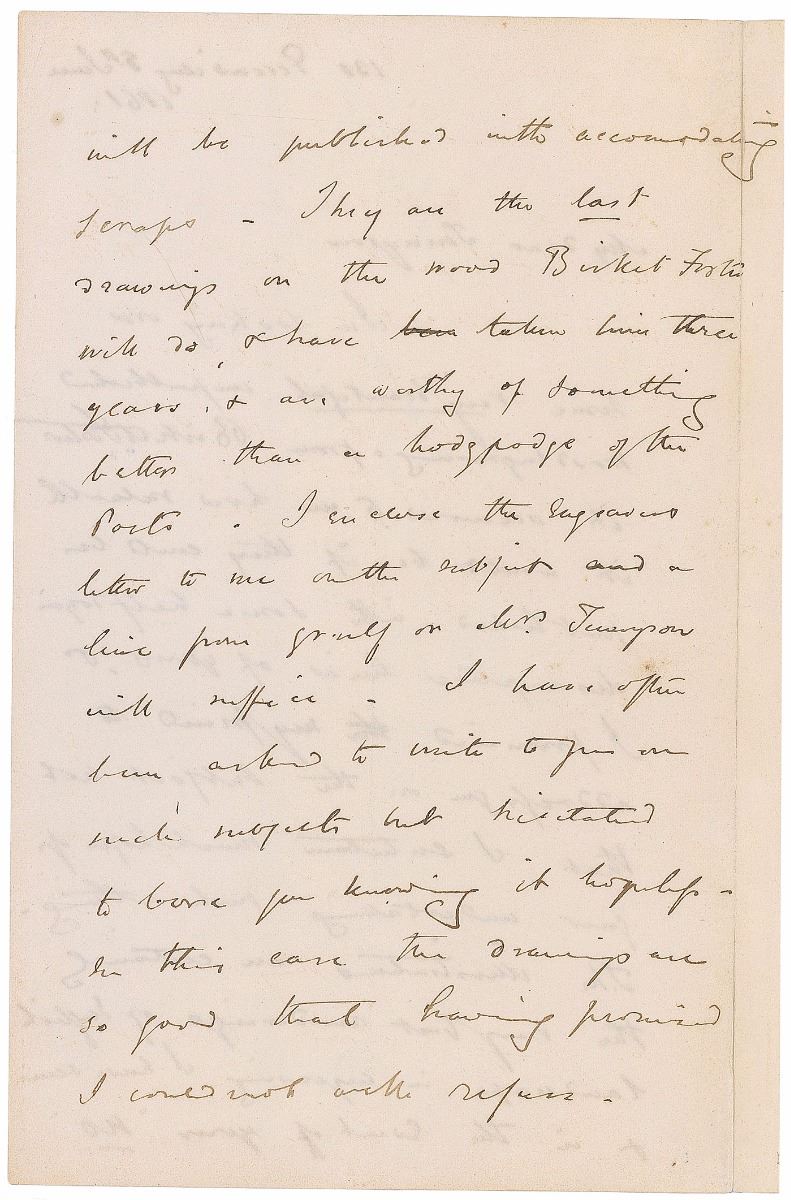 will be published with accomodating
scraps - They are the last
drawings on the wood Birket Foster
will do, & have been taken him three
years, & are worthy of something
better than a hodgpodge of the
Poets. I enclose the Engravers
letter to me on the subject and a
line from yrself or Mrs. Tennyson
will suffice - I have often
been asked to write to you on
such subjects but hesitated
to bore you knowing it hopeless -
In this case the drawings are
so good that having promised
I could not well refuse.